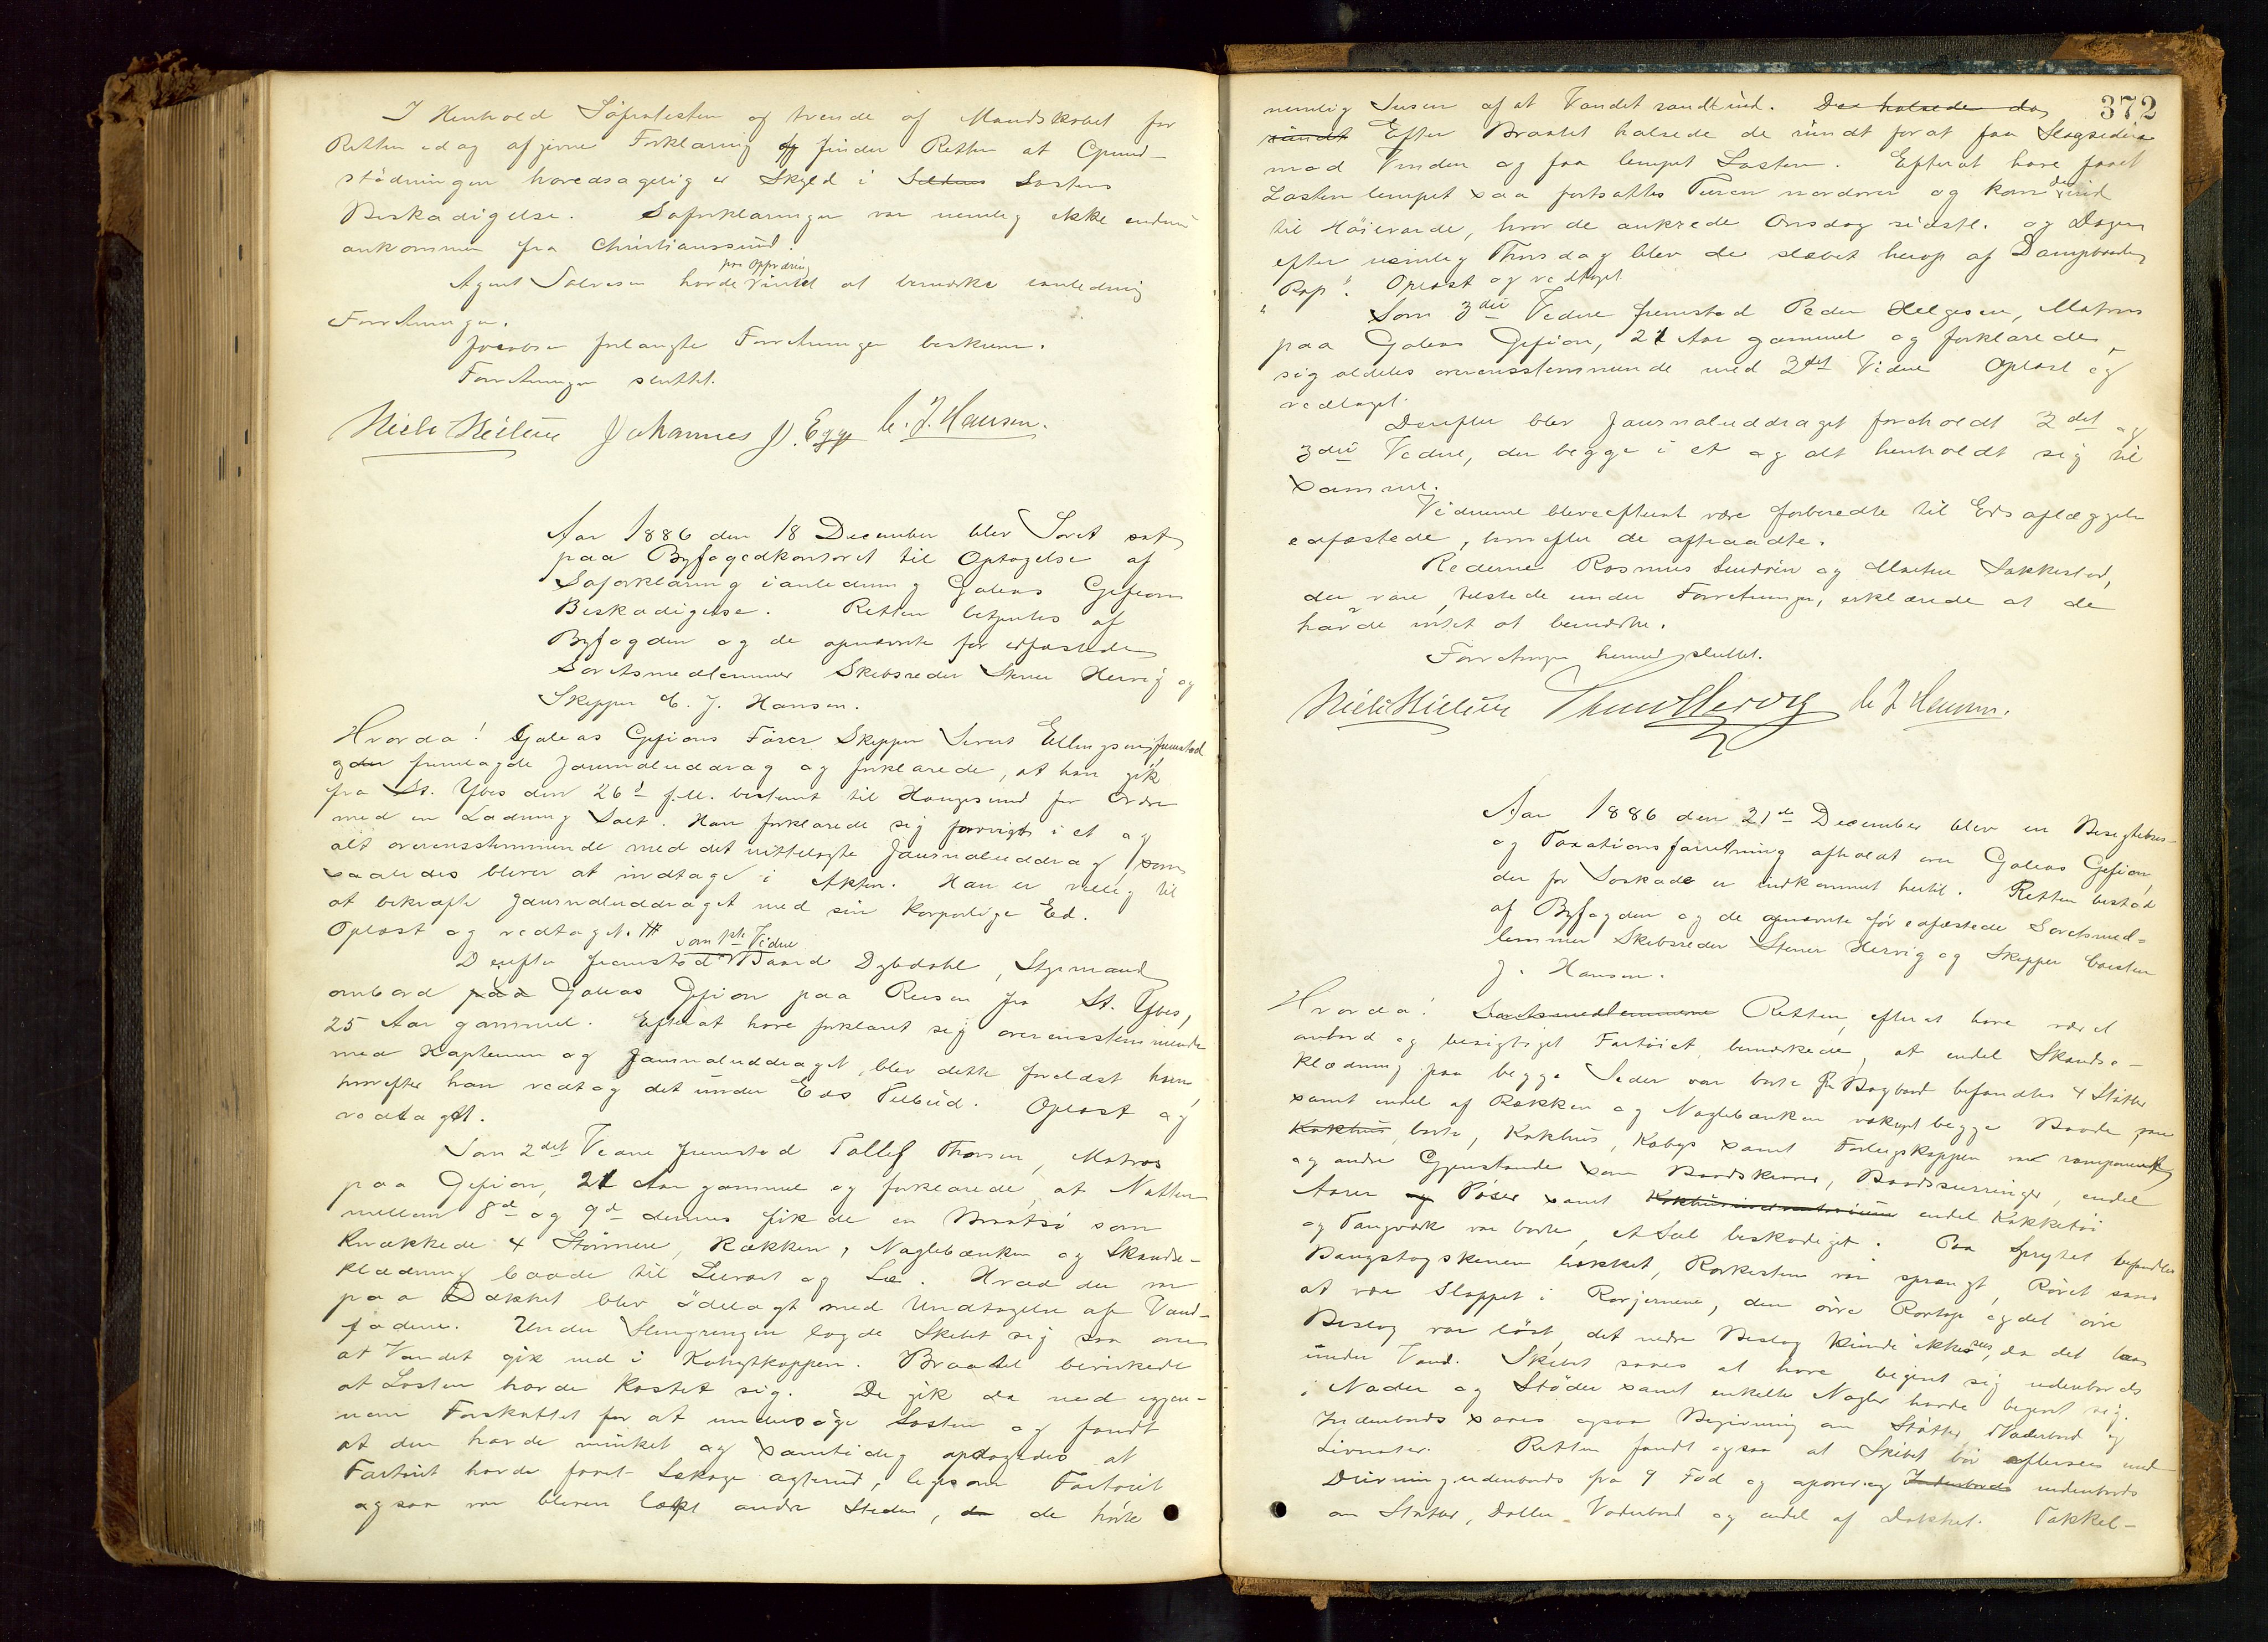 I Henhold Söprotesten og trende af Mandskabet for
Retten idag afgivne Forklaring finder Retten at Grund-
stödningen hovedsagelig er Skyld i Lastens
Beskadigelse. Söforklaringen var nemlig ikke endnu
ankommen fra Christianssund.
paa Opfordring
Agent Salvesen havde intet at bemærke ianledning
Forretningen.
Jacobsen forlangte Forretningen beskreven.
Forretningen sluttet.
Niels Nielsen Johannes J. Egge C. J. Hansen.
Aar 1886 den 18 December blev Søret sat
paa Byfogedkontoret til Optagelse af
Søforklaring ianledning Galeas Gefions
Beskadigelse. Retten betjentes af
Byfogden og de opnævnte før edfæstede
Soretsmedlemmer Skibsreder Stener Hervig og
Skipper C. J. Hansen.
Hvorda! Galeas Gefions Fører Skipper Sivert Ellingsen fremstod
og fremlagde Journaluddrag og forklarede, at han gik
fra St. Ybes den 26d f.M. bestemt til Haugesund for Ordre
med en Ladning Salt. Han forklarede sig forøvrigt i et og
alt overensstemmende med det utstedte Journaluddrag som
saaledes bliver at indtage i Akten. Han er villig til
at bekræfte Journaluddraget med sin korporlige Ed.
Oplæst og vedtaget.
som 1ste Vidne
Derefter fremstod Baard Dybdahl, Styrmand
ombord paa Galeas Gefion paa Reisen fra St. Ybes,
25 Aar gammel. Efterat have forklaret sig overensstemmende
med Kapteinen og Journaluddraget, blev dette forelæst ham,
hvorefter han vedtog det under Eds Tilbud. Oplæst og
vedtaget.
Som 2det Vidne fremstod Tollef Thorsen, Matros
paa Gefion, 21 Aar gammel og forklarede, at Natten
mellem 8de og 9de dennes fik de en Braatsö som
knækkede 4 Støtter, Rækken, Naglebænken og Skandse-
klædning baade til Luvart og Læ. Hvad der var
paa Dækket blev ödelagt med Undtagelse af Vand-
fadene. Under Slengningen lagde Skibet sig saa over
at Vandet gik ned i Kahytkappen. Braattet bevirkede
at Lasten havde kastet sig. De gik da ned igjen-
nem Forskottet for at undersöge Lasten og fandt
at den havde minket og samtidig opdagedes at
Fartöiet havde faaet Lækage agterud, ligesom Fartöiet
ogsaa var bleven læk andre Steder, da de hörte
372
nemlig Susen af at Vandet randt ind. Der halsede da
rundt Efter Braatet halsede de rundt for at faa Slagsiden
mod Vinden og faa lempet Lasten. Efterat have faaet
Lasten lempet saa fortsattes Turen nordover og kom de ind
til Höievarde, hvor de ankrede Onsdag sidstl. og Dagen
efter nemlig Thorsdag blev de slæbet herop af Dampbaaden
"Rap". Oplæst og vedtaget.
Som 3die Vidne fremstod Peder Helgesen, Matros
paa Galeas Gefion, 21 Aar gammel og forklarede
sig aldeles overensstemmende med 2det Vidne Oplæst og
vedtaget.
Derefter blev Journaluddraget foreholdt 2det og
3die Vidne, der begge i et og alt henholdt sig til
samme.
Vidnerne bleve efterat være forberedte til Edsaflæggelse
edfæstede, hvorefter de aftraadte.
Rederne Rasmus og Martin Sakkestad,
der vare tilstede under Forretningen, erklærede at de
havde intet at bemærke.
Forretningen hermed sluttet.
Niels Nielsen Stener Hervig C. J. Hansen.
Aar 1886 den 21de December blev en Besigtelses-
og Taxationsforretning afholdt over Galeas Gefion,
der for Søskade er indkommet hertil. Retten bestod
af Byfogden og de opnævnte før edfæstede Soretsmed-
lemmer Skibsreder Stener Hervig og Skipper Carsten
J. Hansen.
Hvorda! Soretsmedlemmerne Retten, efterat have været
ombord og besigtiget Fartöiet, bemærkede, at endel Skandse-
klædning paa begge Sider var borte paa Bagbord befandtes 4 Støtter
samt endel af Rækken og Naglebænken vækket begge Baade var
Kokhus borte, Kokhus, Kabys samt Forlugskappen var ramponeret
og andre Gjenstande som Baadskraver, Baadssurringer, endel
Aarer og Pöser samt endel Kokketöi
og Tougværk var borte, et Seil beskadiget. Paa Spryjtet befandtes
Baugstagskenen brækket, Rorkisten var sprængt, Roret saaes
at være slappet i Rorjernene, den övre Rortap og det övre
Beslag var löst, det nedre Beslag kunde ikke sees, da det laa
under Vand. Skibet saaes at have begivet sig udenbords
i Nader og Stöder samt enkelte Nagler havde begivet sig.
Indenbords saaes ogsaa Begivning om Støtter Vaderbord og
Livnater. Retten fandt ogsaa at Skibet bör eftersees med
Drivning udenbords fra 9 Fod og opover og Indenbords udenbords
om Støtter, Doller Vaderbord og endel af Dækket. Takkel-